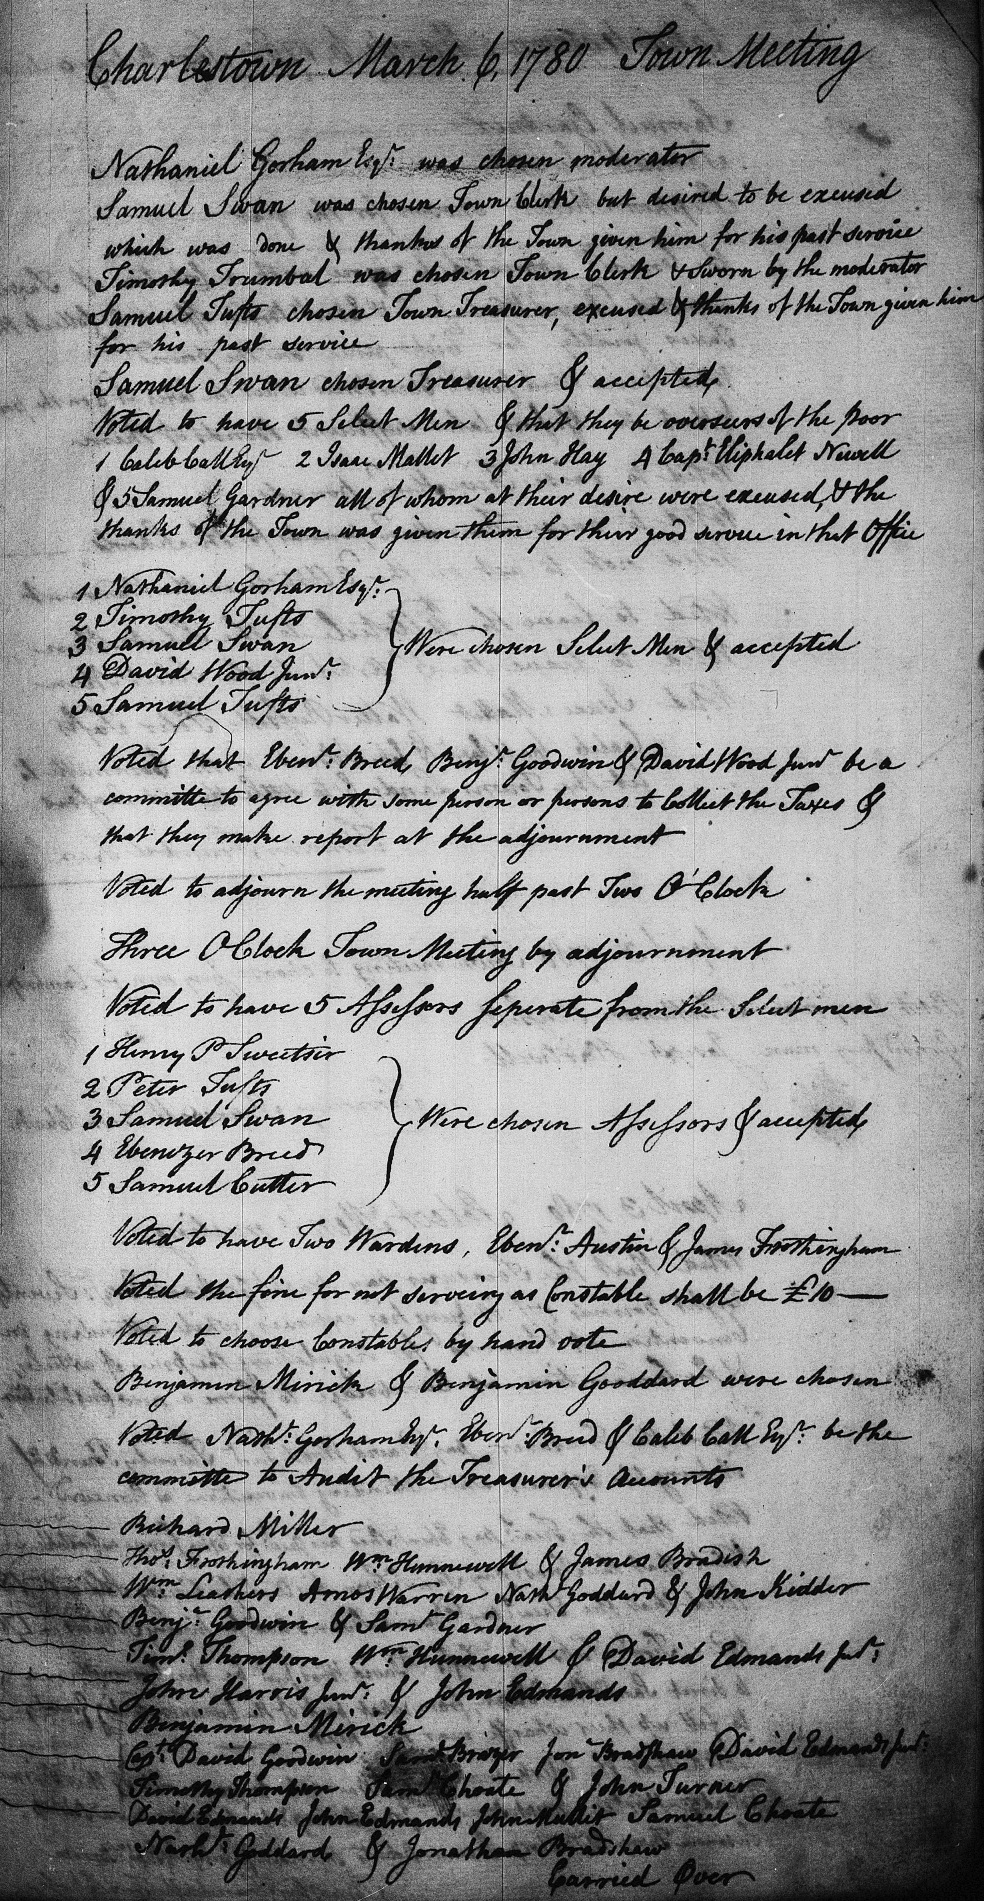 Charlestown March 6, 1780 Town Meeting
Nathaniel Gorham Esqr. was chosen moderator
Samuel Swan was chosen Town Clerk but desired to be excused
which was done & thanks of the Town given him for his past service
Timothy Trumbal was chosen Town Clerk & Sworn by the moderator
Samuel Tufts chosen Town Treasurer, excused & thanks of the Town given him
for his past service
Samuel Swan chosen Treasurer & accepted
Voted to have 5 Select Men & that they be overseers of the Poor
1 Caleb Call Esqr 2 Isaac Mallet 3 John Hay 4 Capt. Eliphalet Newell
& 5 Samuel Gardner all of whom at their desire were excused, & the
thanks of the Town was given them for their good service in that Office
1 Nathaniel Gorham Esqr.
2 Timothy Tufts
3 Samuel Swan
4 David Wood Junr.
5 Samuel Tufts
Were chosen Select Men & accepted
Voted that Ebenr. Breed, Benjr. Goodwin & David Wood Junr be a
committe to agree with some person or persons to Collect the Taxes &
that they make report at the adjournment
Voted to adjourn the meeting half past Two O'Clock
Three O Clock Town Meeting by adjournment
Voted to have 5 Assessors seperate from the Select men
1 Henry P Sweetsir
2 Peter Tufts
3 Samuel Swan
4 Ebenezer Breed
5 Samuel Cutter
Were chosen Assessors & accepted
Voted to have Two Wardens, Ebenr. Austin & James Frothingham
Voted the fine for not serveing as Constable shall be £10—
Voted to choose Constables by hand vote
Benjamin Mirick & Benjamin Gooddard were chosen
Voted Nathl. Gorham Esqr. Ebenr. Breed & Caleb Call Esqr. be the
committe to Audit the Treasurer's Accounts
Richard Miller
Thos. Frothingham Wm. Hunnewell & James Bradish
Wm. Leathers Amos Warren Nathl Goddard & John Kidder
Benjr. Goodwin & Saml Gardner
Timo. Thompson Wm. Hunnewell & David Edmands Junr.
John Harris Junr. & John Edmands
Benjamin Mirick
Capt. David Goodwin Saml. Brazer Jon Bradshaw David Edmands Junr.
Timothy Thompson Saml Choate & John Turner
David Edmands John Edmands John Mullet Samuel Choate
Nathl. Goddard & Jonathan Bradshaw
Carried Over